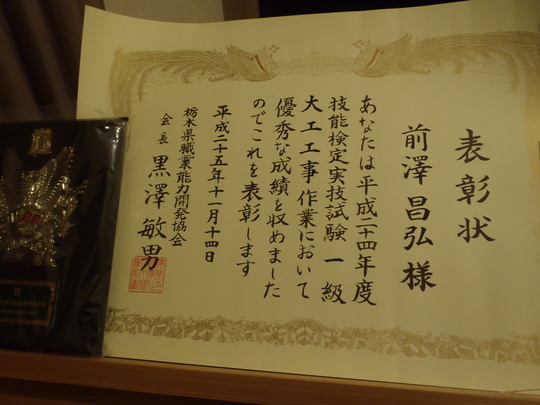 表彰状
前澤昌弘様
あなたは平成二十四年度
技能検定実技試験 一級
大工工事作業において
優秀な成績を収めました
のでこれを表彰します
平成二十五年十一月十四日
栃木県職業能力開発協会
会長 黒澤敏男